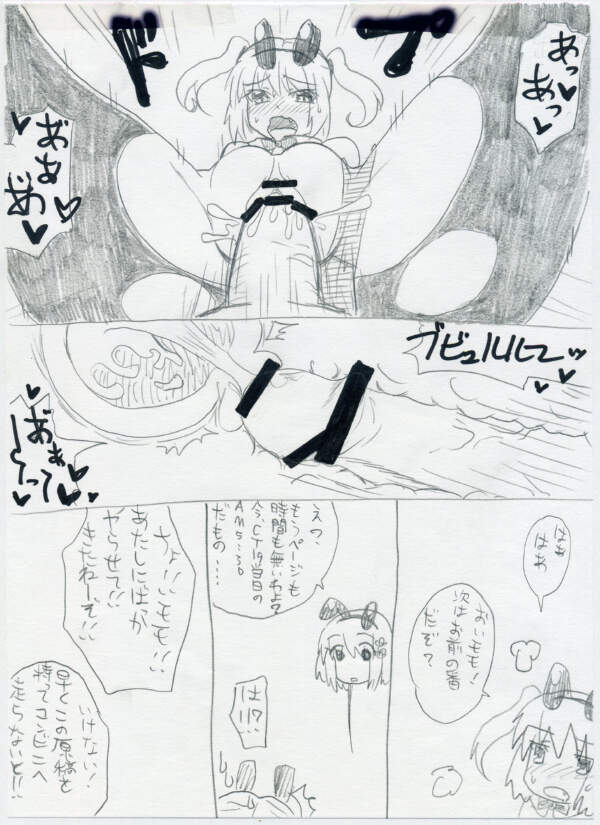 ドプッ
あっ♥
あっ♥
あぁ♥
ブビュルルルッ
はぁ
はぁ
おいもも!
次はお前の番
だぞ?
えっ、
もうページも
時間も無いわよ?
今、CT19当日の
AM5:30
だもの‥‥
は!!?
ちょ!!もも!!
あたしにばか
やらせて!!
きたねーぞ!!
いけない!
早くこの原稿を
持てコンビニへ
走らないと!!